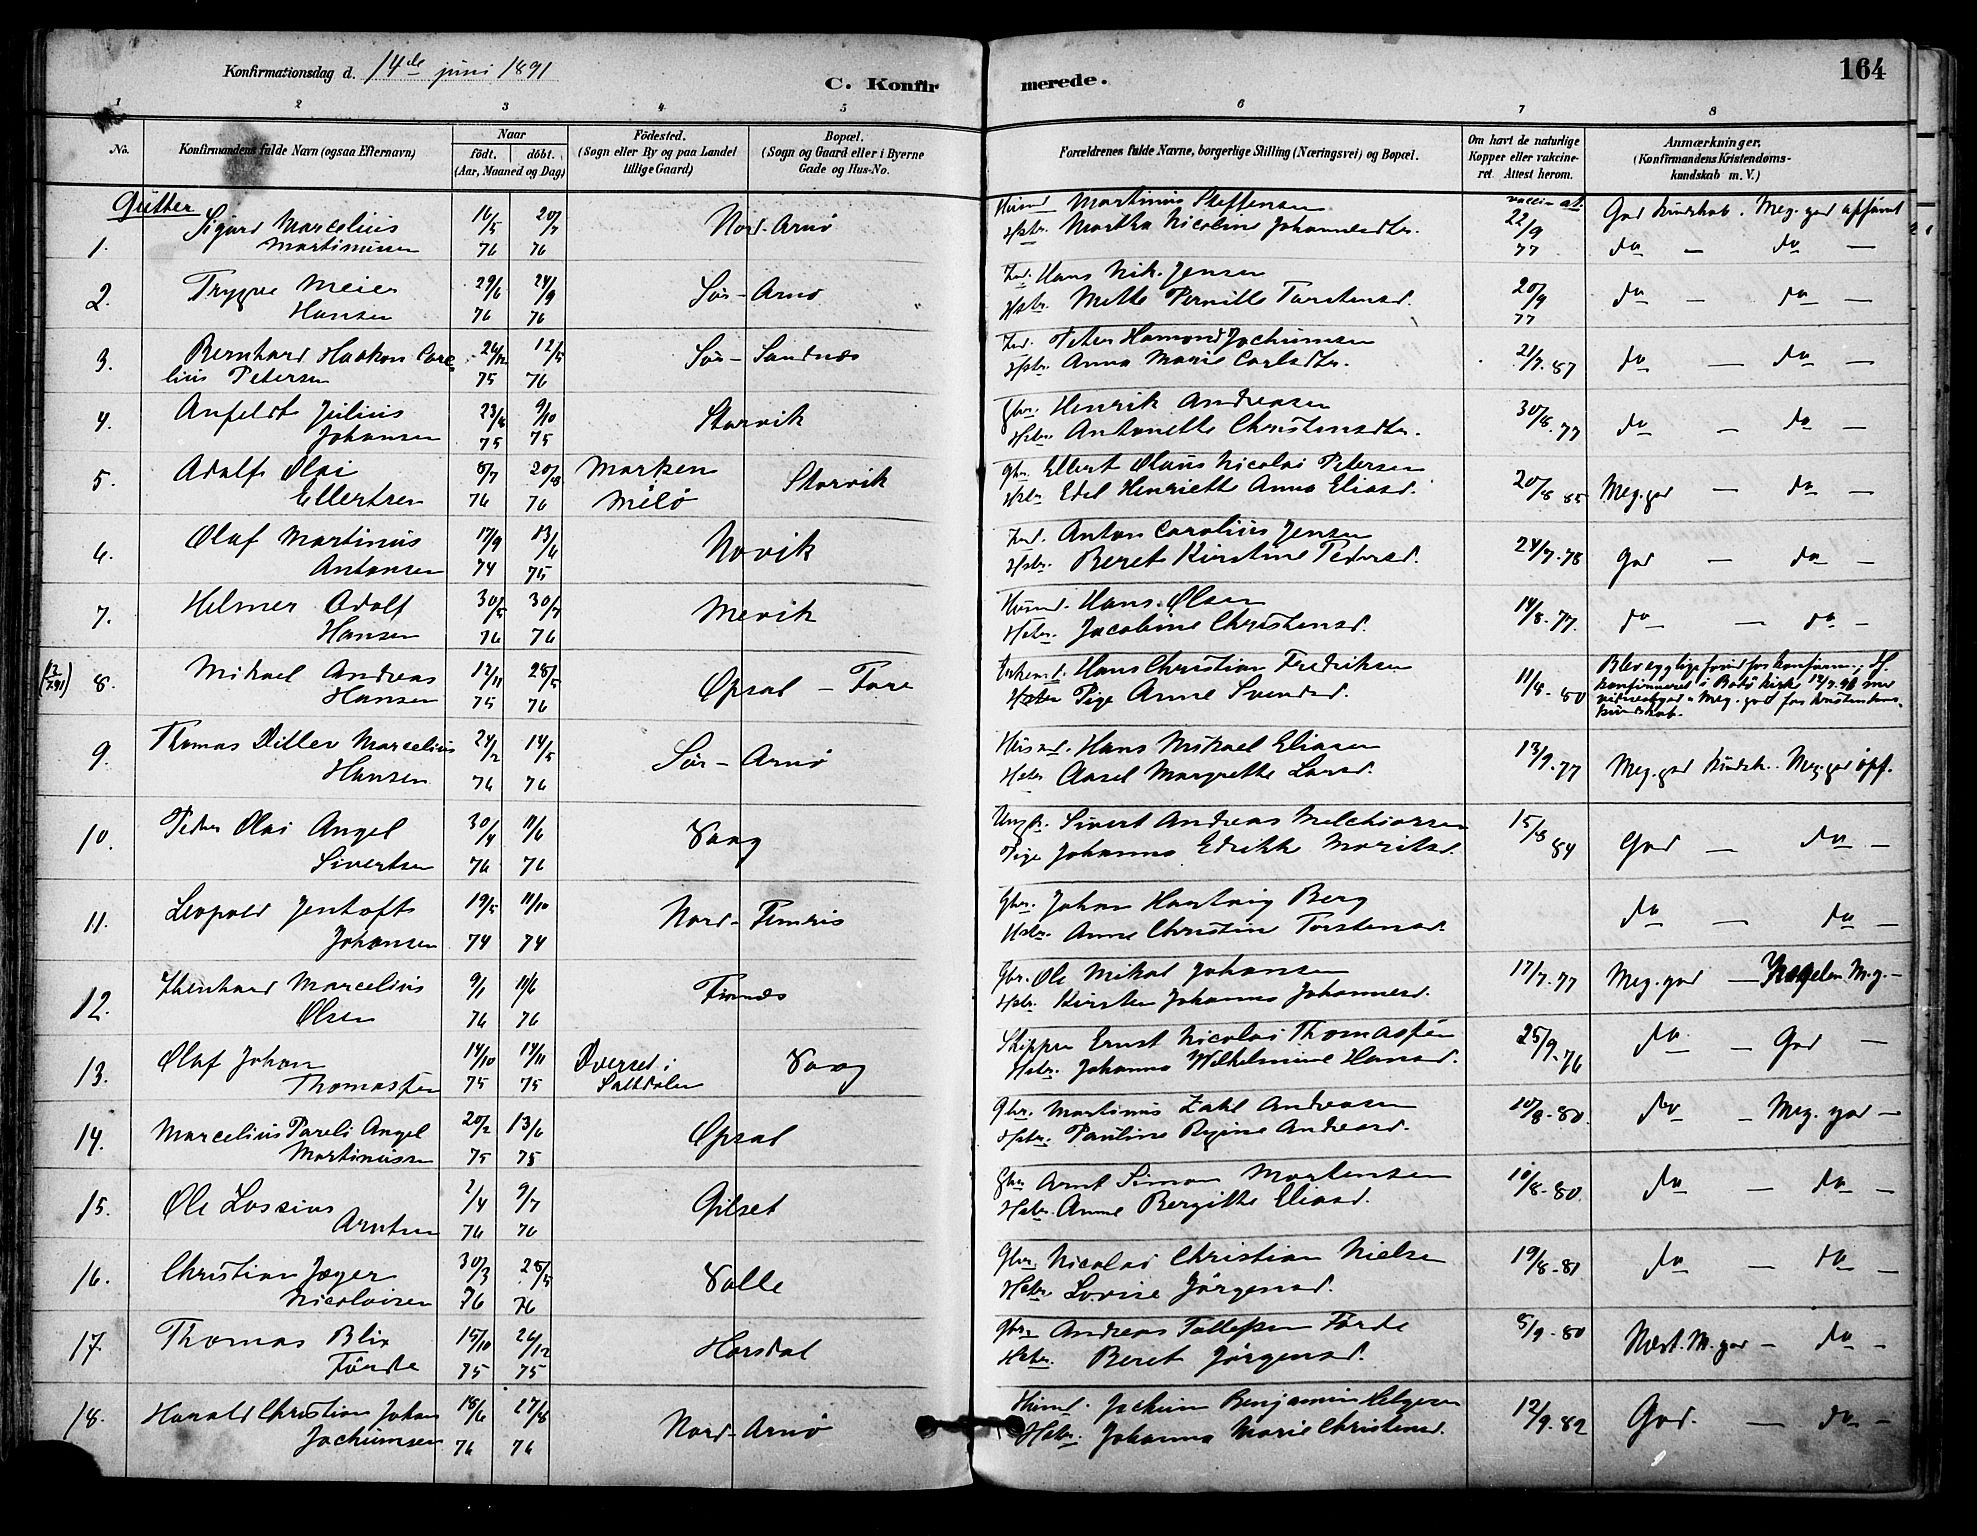 Konfirmationsdag d. 14de juni 1891
C. Konfirmerede.
164
1 2 3 4 5 6 7 8
No.
Konfirmandens fulde Navn (ogsaa Efternavn)
Naar
födt. döbt.
(Aar, Maaned og Dag)
Födested.
(Sogn eller By og paa Landet
tillige Gaard)
Bopæl.
(Sogn og Gaard eller i Byerne
Gade og Hus-No.
Forældrenes fulde Navne, borgerlige Stilling (Næringsvei) og Bopæl.
Om havt de naturlige
Kopper eller vakcine-
ret. Attest herom.
Anmærkninger.
(Konfirmandens Kristendoms-
kundskab m. V.)
Gutter
1. Sigurd Marcelius 16/5 20/7 Nord-Arnø Husmd Martinus Steffensen vaccin at. 22/9 God kundskab. Meg. god opførsel
Martinussen 76 76 Hstr. Martha Nicoline Johannesdtr. 77 do — do —
2. Trygve Meier 29/6 24/9 Sør-Arnø Ind. Hans Nik. Jensen 20/9 do — do —
Hansen 76 76 Hstr. Mette Pernille Torstensd. 77
3. Bernhard Haakon Core 26/12 12/5 Sør-Sandnes Ind. Peter Hamond Jochumsen 21/7. 87 do — do —
lius Petersen 75 76 Hstr. Anna Marie Carlsdtr.
4. Anfeldt Julius 23/8 9/10 Storvik Gbr. Henrik Andreasen 30/8. 77 do — do —
Johansen 75 75 Hstr. Antonette Christensdtr.
5. Adolf Olai 8/7 20/8 Marken Storvik Gbr. Ellert Olaus Nicolai Petersen 20/8 85 Meg. god — do —
Ellertsen 76 76 Melø Hstr. Edel Henriette Anna Eliasd.
6. Olaf Martinus 17/9 13/6 Novik Ind. Anton Carolius Jensen 24/7. 78 God — do —
Antonsen 74 75 Hstr. Beret Kirstine Pedersd.
7. Helmer Adolf 30/5 30/7 Mevik Husmd. Hans Olsen 14/8. 77. do — do —
Hansen 76 76 Hstr. Jacobine Christensd.
8. Mikael Andreas 12/11 28/5 Opsal - Fore Hans Christian Fredriksen 11/8. 80 Blev syg lige forud for konfirm.;
Hansen 75 76 Pige Anne Svendsd. konfirmeret i Bodø kirke
Meg. god for kristendoms-
kundskab.
9. Thomas Ditlev Marcelius 24/2 14/5 Sør-Arnø Husmd. Hans Mikael Eliasen 13/9. 77 Meg. god kundsk. Meg. god opf.
Hansen 76 76 Hstr. Aasel Margrethe Larsd.
10. Peder Olai Angel 30/4 11/6 Vaag Ungk. Sivert Andreas Melchiorsen 15/8 84 God — do —
Sivertsen 76 76 Pige Johanna Edrikke Moritsd.
11. Leopold Jentoft 19/5 11/10 Nord-Femris Gbr. Johan Hartvig Berg do — do —
Johansen 74 74 Hstr. Anne Christine Torstensd.
12. Marcelius 9/1 11/6 Finnes Gbr. Ole Mikal Johansen 17/7. 77 Meg. god —
Olsen 76 76 Hstr. Kirsten Johanna Johannesd.
13. Olaf Johan 14/10 14/11 Överset i Vaag Skipper Ernst Nicolai Thomassen 25/9. 76 do — God —
Thomassen 75 75 Saltdalen Hstr. Johanna Wilhelmine Hansd.
14. Marcelius Pareli Angel 20/2 13/6 Opsal Gbr. Martinus Zakd Andreasen 10/8. 80. do — Meg. god —
Martinussen 75 75 Hstr. Pauline Regine Andreasd.
15. Ole Lossius 2/4 9/7 Gilset Gbr Arnt Simon Mortensen 10/8. 80. do — do —
Arntsen 76 76 Hstr. Anne Bergitte Eliasd.
16. Christian Jæger 30/3 25/5 Valle Gbr. Nicolai Christian Nielsen 19/8. 81 do — do —
Nicolaisen 76 76 Hstr. Lovise Jørgensd.
17. Thomas Blix 15/10 26/12 Horsdal Gbr. Andreas Tollefsen Førde 5/9. 80 Næst. M. god — do —
Førde 75 75 Hstr. Beret Jørgensd.
18. Harald Christian Johan 18/6 27/8 Nord-Arnø Husmd. Jochum Benjamin Helgesen 12/9. 82 God. — do —
Jochumsen 76 76 Hstr. Johanna Marie Christensd.